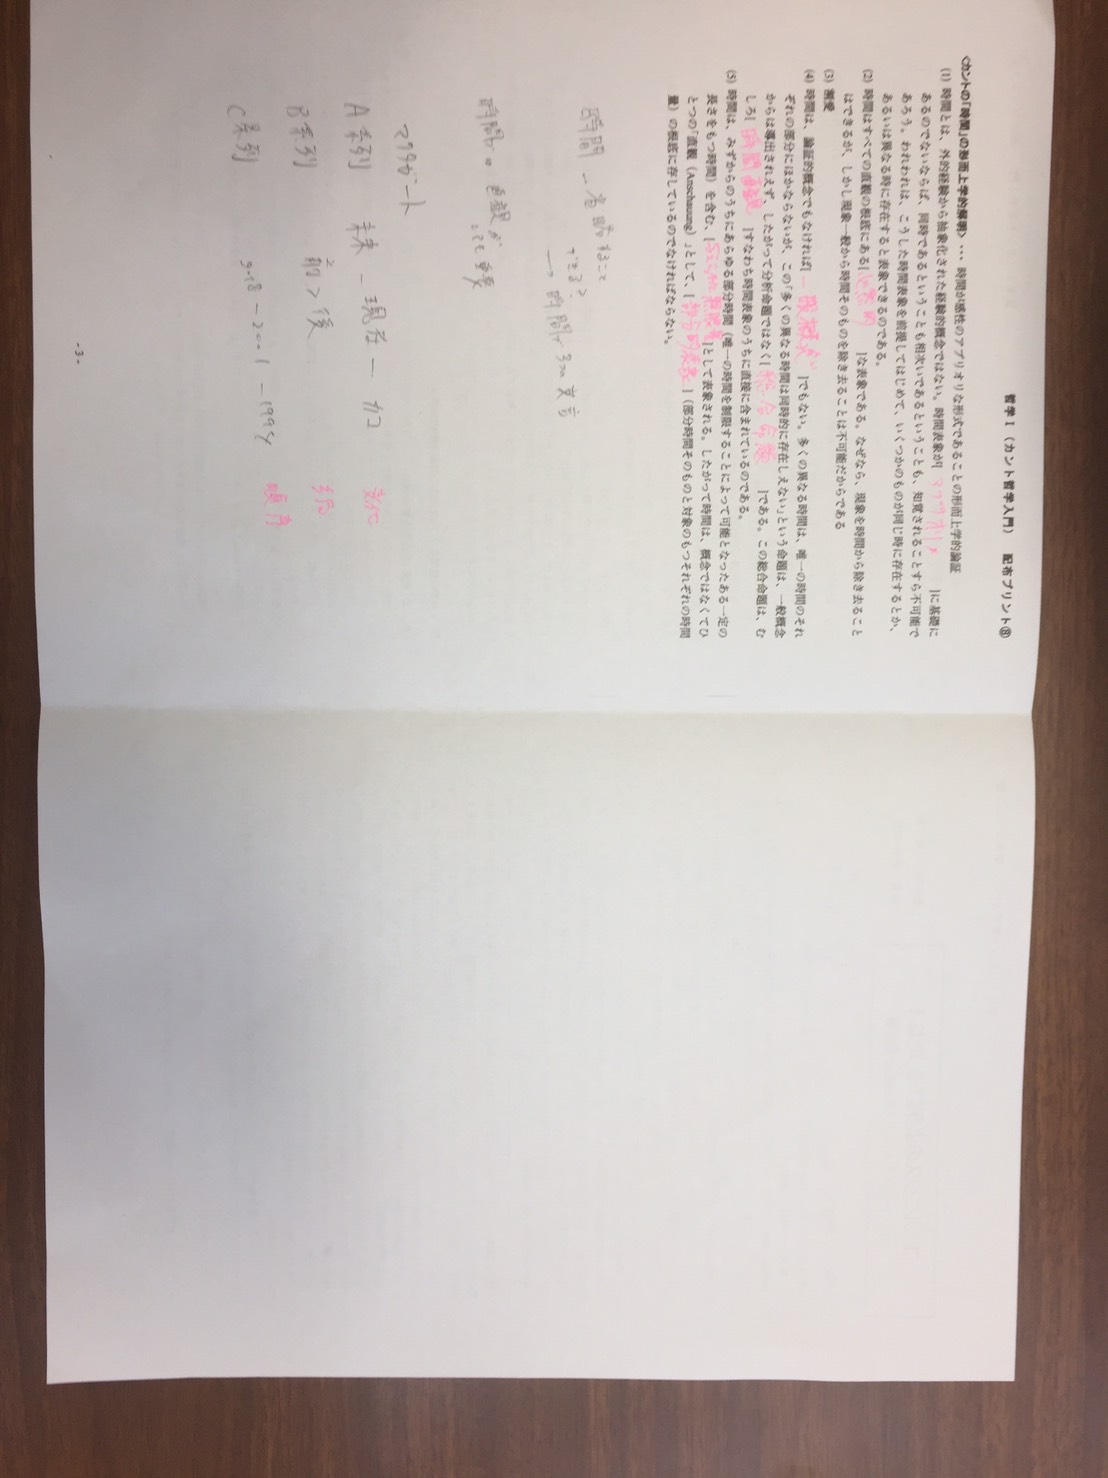 哲学Ⅰ（カント哲学入門）　配布プリント⑧
＜カントの「時間」の形而上学的解明＞・・・時間が感性のアプリオリな形式であることの形而上学的論証
(1) 時間とは、外的経験から抽象化された経験的概念ではない。時間表象が[ アプリオリ ]に基礎に
あるのでないならば、同時であるということも相次いであるということも、知覚されることすら不可能で
あろう。われわれは、こうした時間表象を前提してはじめて、いくつかのものが同じ時に存在するとか、
あるいは異なる時に存在すると表象できるのである。
(2) 時間はすべての直観の根底にある[ 必然的 ]な表象である。なぜなら、現象を時間から除き去ること
はできるが、しかし現象一般から時間そのものを除き去ることは不可能だからである
(3) 割愛
(4) 時間は、論証的概念でもなければ[ 一般概念 ]でもない。多くの異なる時間は、唯一の時間のそれ
ぞれの部分にほかならないが、この「多くの異なる時間は同時的に存在しえない」という命題は、一般概念
からは導出されえず、したがって分析命題ではなく[ 総合命題 ]である。この総合命題は、む
しろ[ 時間直観 ]すなわち時間表象のうちに直接に含まれているのである。
(5) 時間は、みずからのうちにあらゆる部分時間（唯一の時間を制限することによって可能となったある一定の
長さをもつ時間）を含む、[ 無限量 ]として表象される。したがって時間は、概念ではなくてひ
とつの「直観（Anschauung）」として、[ 部分的表象 ]（部分時間そのものと対象のもつそれぞれの時間
量）の根底に存しているのでなければならない。
時間 ー 省略すること
できる?
→ 時間
時間 直観が
とても重要
マクタガート
A系列　未来 ー 現在 ー カコ　変化
B系列　前 > 後
C系列　2001 ー 1994　順序
- 3 -